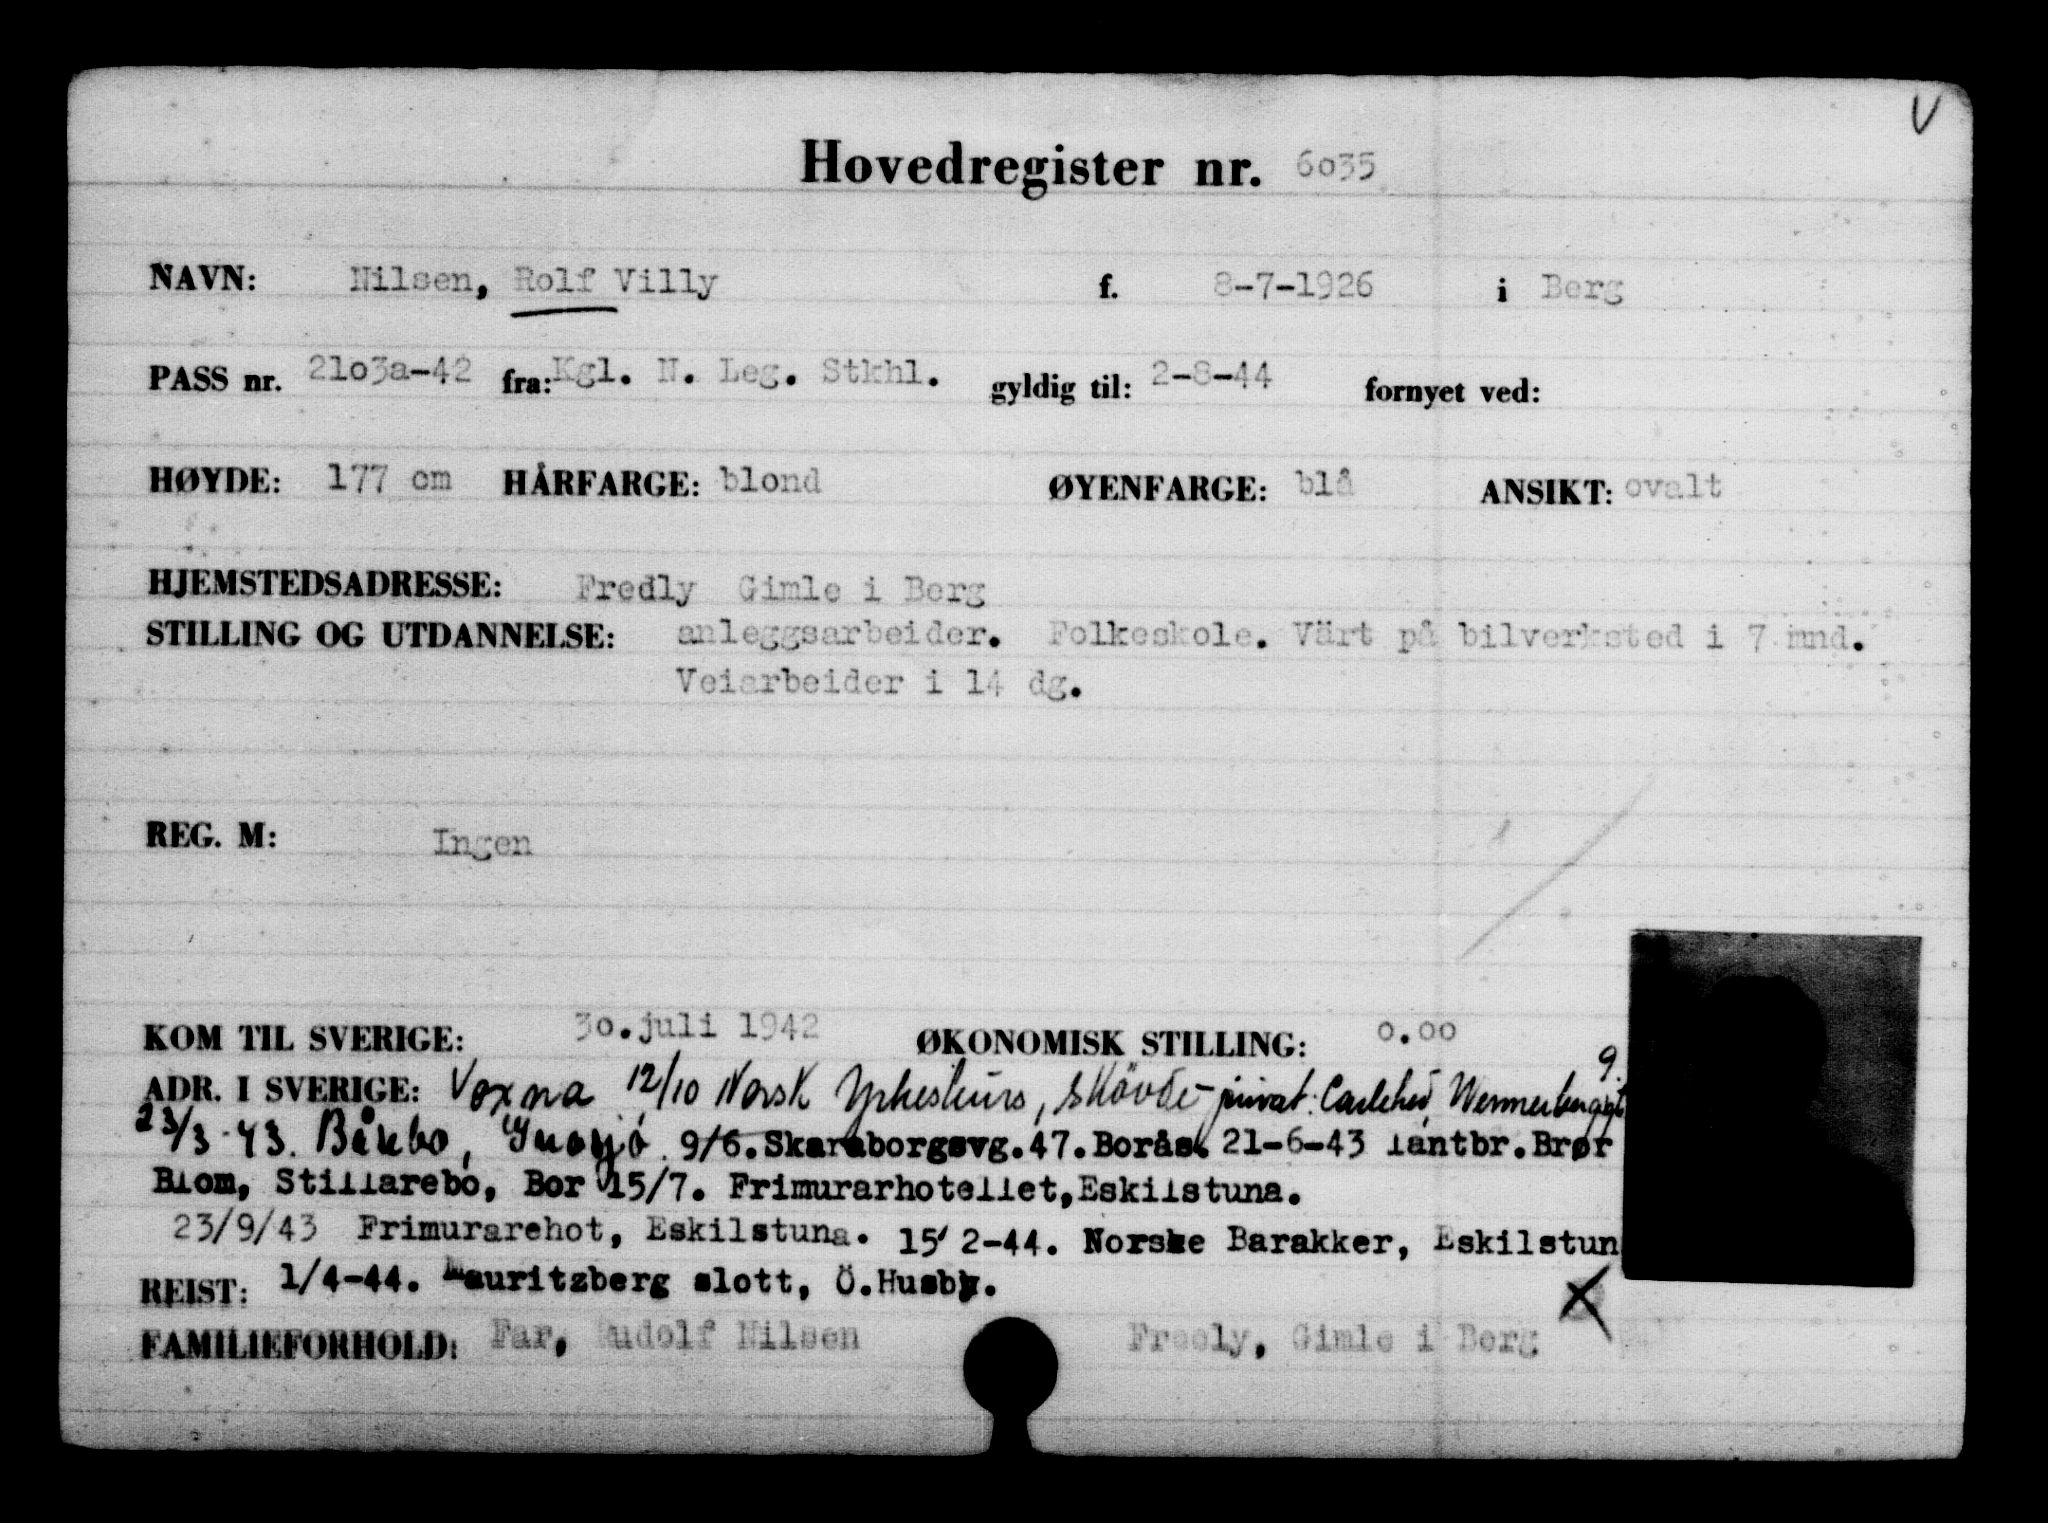 V
Hovedregister nr. 6o35
NAVN: Nilsen, Rolf Villy f. 8-7-1926 i Berg
PASS nr. 21o3a-42 fra: Kgl. N. Leg. Stkhl. gyldig til: 2-8-44 fornyet ved:
HØYDE: 177 cm HÅRFARGE: blond ØYENFARGE: blå ANSIKT: ovalt
HJEMSTEDSADRESSE: Fredly Gimle i Berg
STILLING OG UTDANNELSE: anleggsarbeider. Folkeskole. Värt på bilverksted i 7 mnd.
Veiarbeider i 14 dg.
REG. M: Ingen
KOM TIL SVERIGE: 3o.juli 1942 ØKONOMISK STILLING: o.oo
ADR. I SVERIGE: Voxna 12/10 Norsk Yrkeskurs, Skövde - privat: Carlehed, Wennerbergsgt 9.
23/3-43. Båkbo, Gnosjö. 9/6. Skaraborgsvg.47.Borås. 21-6-43 lantbr.Brør
Blom, Stillarebo, Bor 15/7. Frimurarhotellet,Eskilstuna.
23/9/43 Frimurarehot, Eskilstuna. 15/2-44. Norske Barakker, Eskilstun
REIST: 1/4-44. Mauritzberg slott, Ö.Husby.
FAMILIEFORHOLD: Far, Rudolf Nilsen Freely, Gimle i Berg